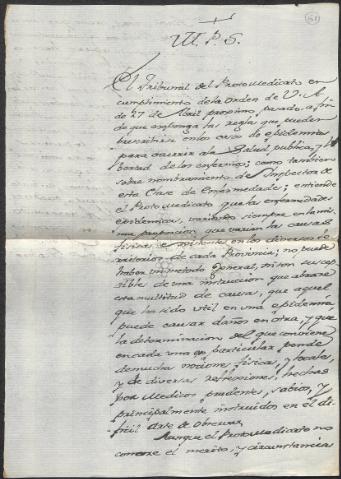 M. P. S.
El Tribunal del Proto Medicato en
cumplimiento de la orden de V. A.
de 27 de Abril proximo pasado a fin
de que exponga las reglas que pueden
en los casos de epidemia
para ocurrir a la Salud publica, y li-
bertad de los enfermos; como tambien
sobre nombramiento de Inspector de
esta Clase de Enfermedades; entiende
el Proto Medicato que las enfermedades
epidemicas, variando siempre en la mis-
ma proporcion que varian las causas
fisicas existentes en los diversos te-
rritorios de cada Provincia; no puede
haber un metodo General, ni son suscep-
tibles de una instruccion que abraze
esta multitud de causas, que aquel
que ha sido util en una epidemia
puede causar daños en otra, y que
la determinacion del que conviene
en cada una en particular pende
de muchas nociones fisicas, y locales,
y de diversas reflexiones, hechas
por Medicos prudentes, sabios, y
principalmente instruidos en el di-
ficil arte de observar.
Aunque el Proto Medicato no
conoce el merito, y circunstancias